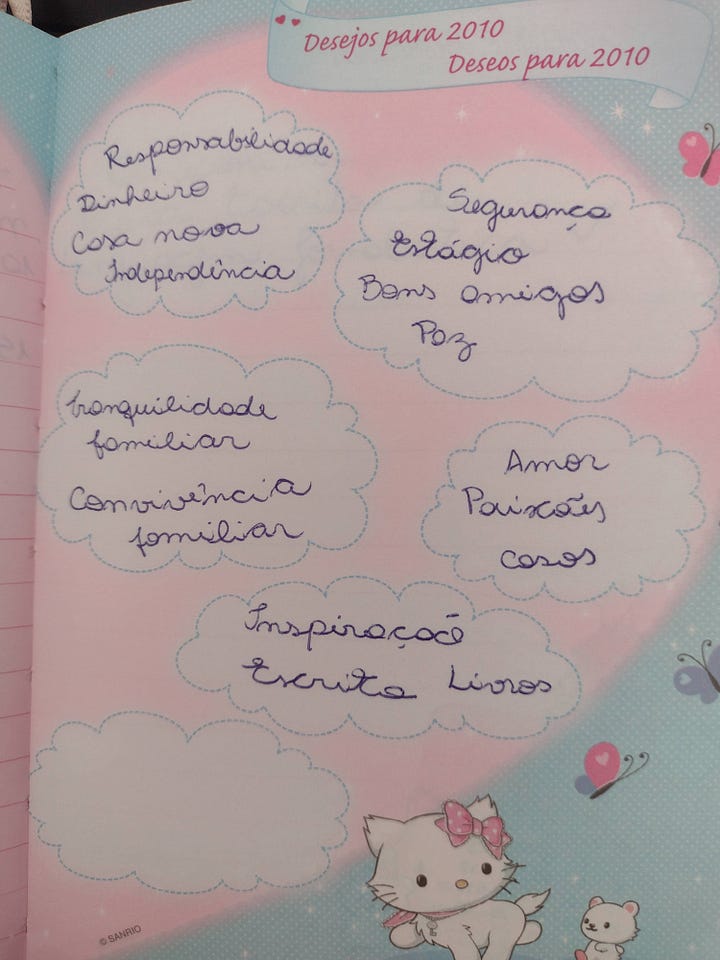 Desejos para 2010
Deseos para 2010
Responsabilidade
Dinheiro
Casa nova
Independência
Segurança
Estágio
Bons amigos
Paz
tranquilidade
familiar
Convivência
familiar
Amor
Paixões
casos
Inspiração
Escrita Livros
© SANRIO